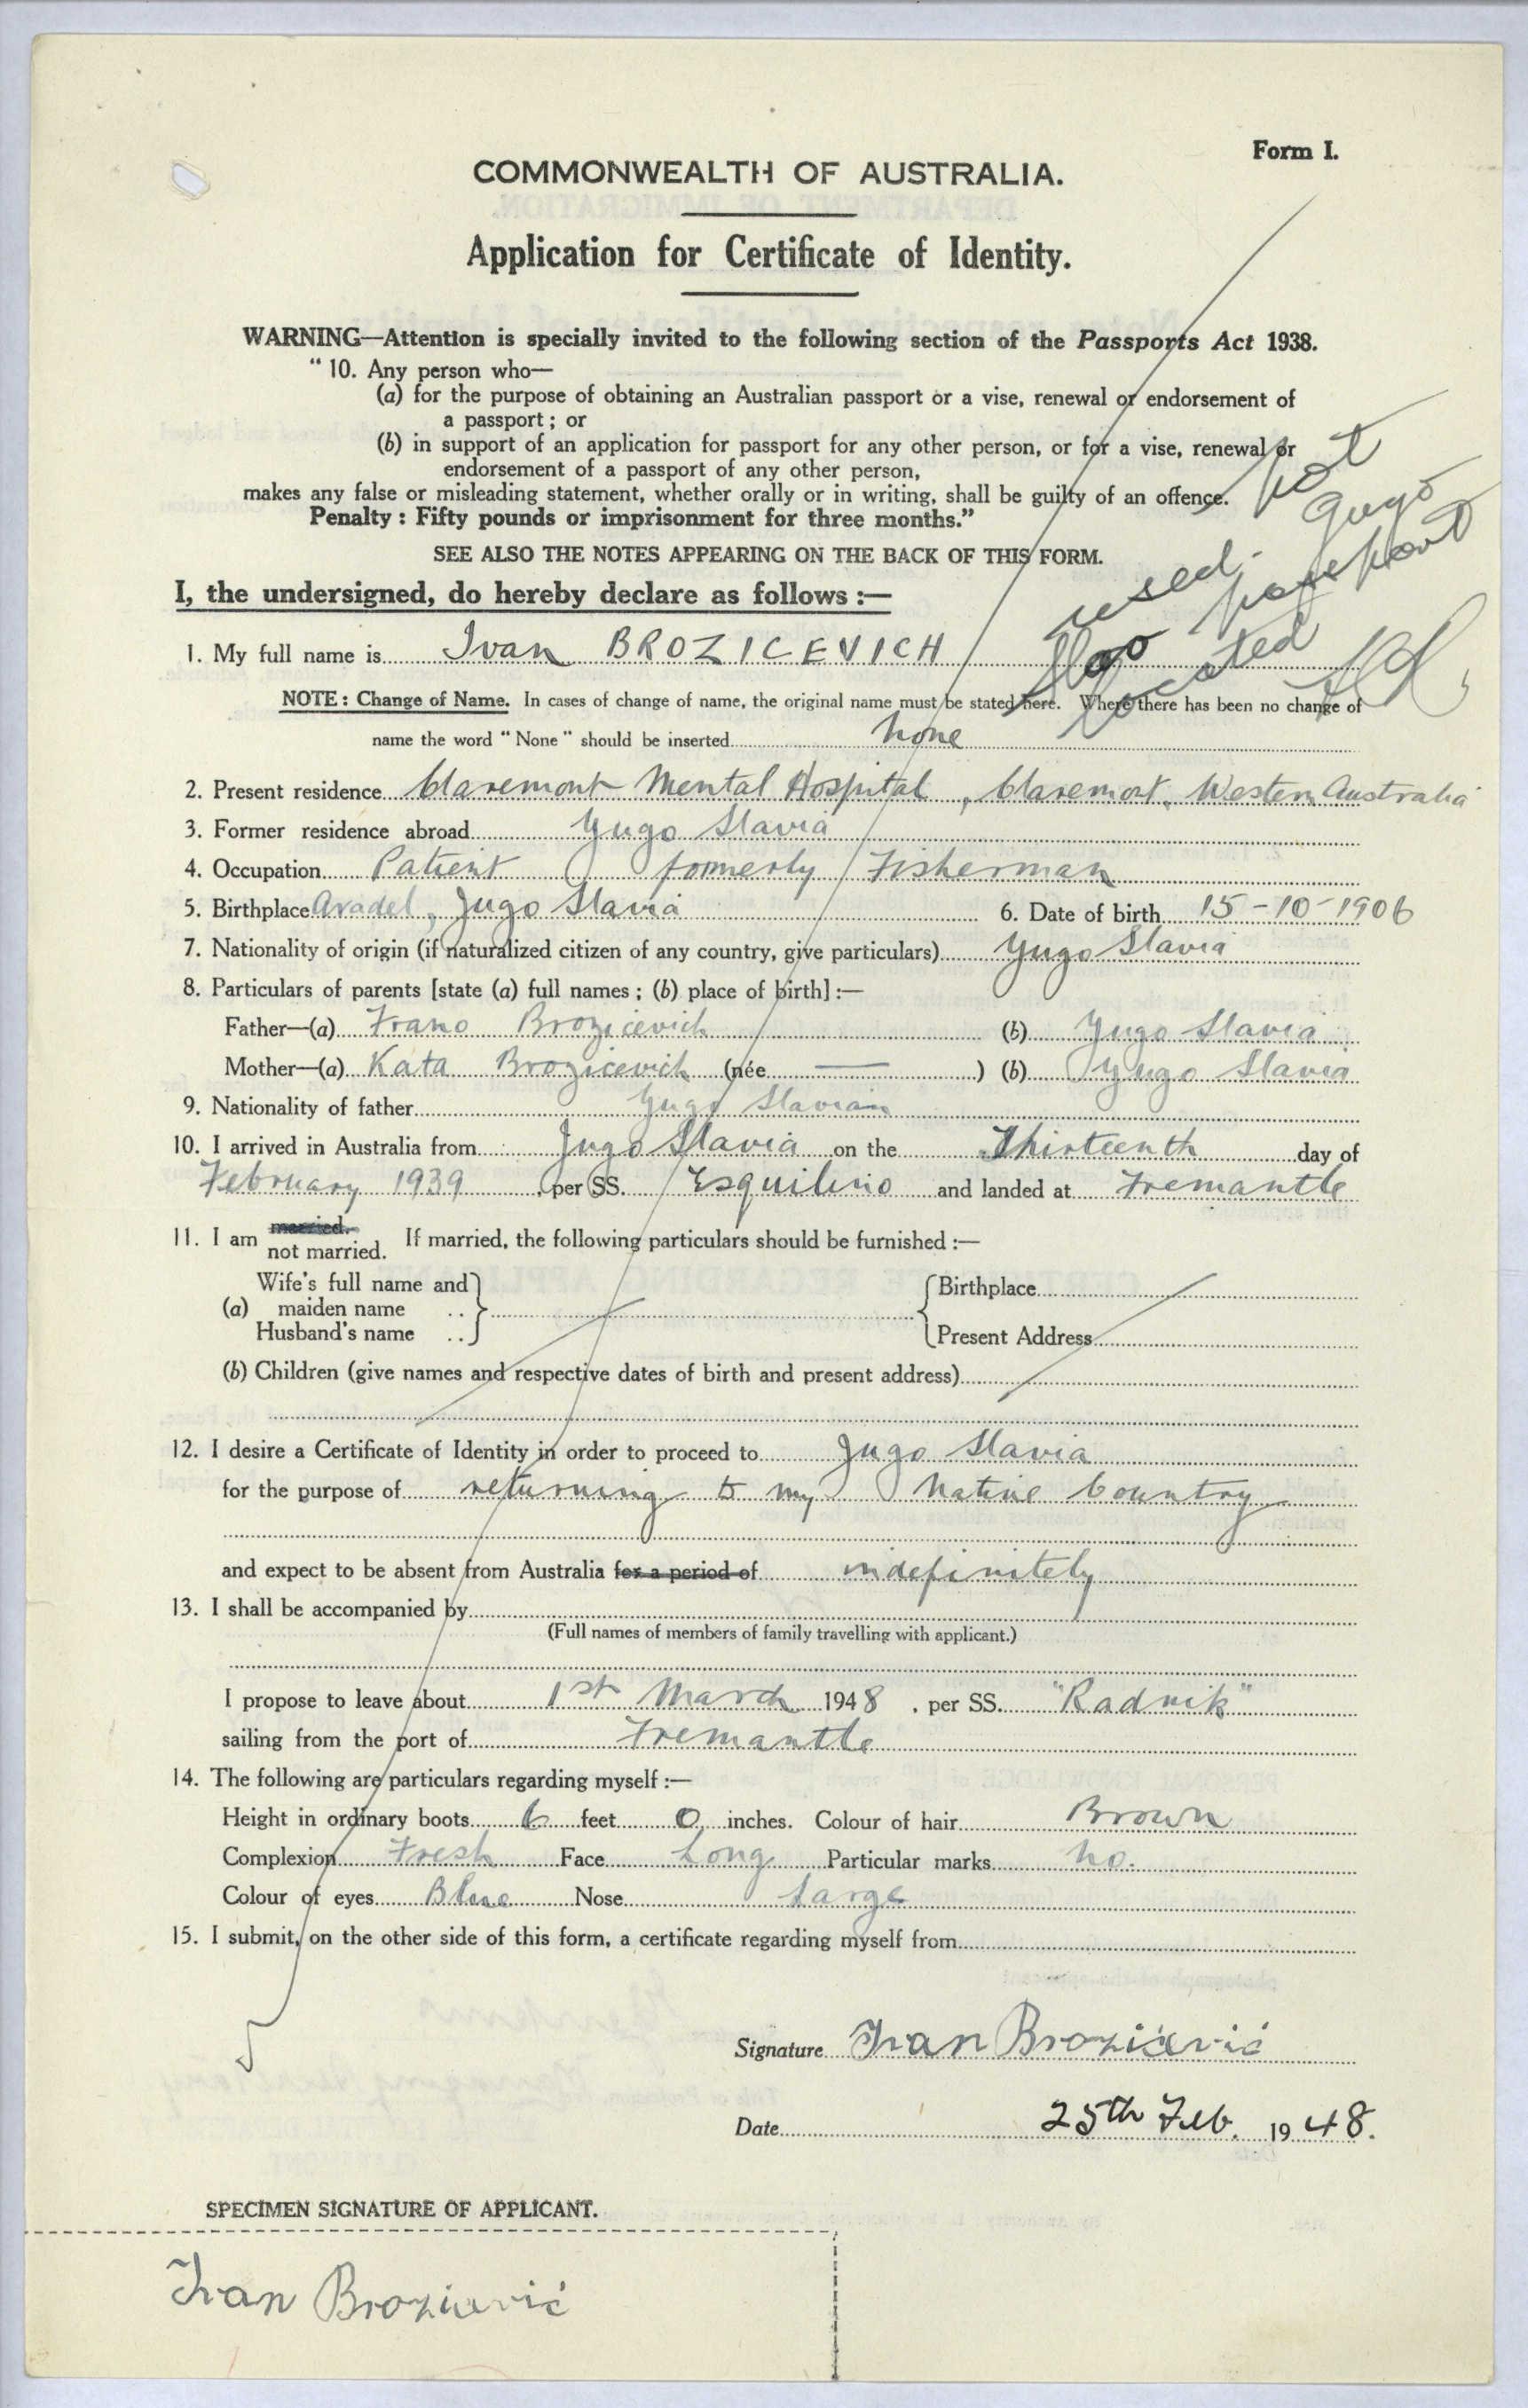 Form I.
COMMONWEALTH OF AUSTRALIA.
Application for Certificate of Identity.
WARNING—Attention is specially invited to the following section of the Passports Act 1938.
"10. Any person who—
(a) for the purpose of obtaining an Australian passport or a vise, renewal or endorsement of
a passport; or
(b) in support of an application for passport for any other person, or for a vise, renewal or
endorsement of a passport of any other person,
makes any false or misleading statement, whether orally or in writing, shall be guilty of an offence.
Penalty: Fifty pounds or imprisonment for three months."
SEE ALSO THE NOTES APPEARING ON THE BACK OF THIS FORM.
not
used.
Jugo
Slav passport
located
I, the undersigned, do hereby declare as follows:—
1. My full name is Ivan BROZICEVICH
NOTE: Change of Name. In cases of change of name, the original name must be stated here. Where there has been no change of
name the word "None" should be inserted None
2. Present residence Claremont Mental Hospital, Claremont, Western Australia
3. Former residence abroad Yugo Slavia
4. Occupation Patient formerly Fisherman
5. Birthplace Aradel, Jugo Slavia 6. Date of birth 15-10-1906
7. Nationality of origin (if naturalized citizen of any country, give particulars) Yugo Slavia
8. Particulars of parents [state (a) full names; (b) place of birth]:—
Father—(a) Frano Brozicevich (b) Yugo Slavia
Mother—(a) Kata Brozicevich (née — ) (b) Yugo Slavia
9. Nationality of father Yugo Slavian
10. I arrived in Australia from Jugo Slavia on the Thirteenth day of
February 1939, per SS. Esquilino and landed at Fremantle
11. I am married. not married. If married, the following particulars should be furnished:—
Wife's full name and Birthplace
(a) maiden name ..
Husband's name .. Present Address
(b) Children (give names and respective dates of birth and present address)
12. I desire a Certificate of Identity in order to proceed to Jugo Slavia
for the purpose of returning to my Native Country
and expect to be absent from Australia for a period of indefinitely
13. I shall be accompanied by
(Full names of members of family travelling with applicant.)
I propose to leave about 1st March 1948, per SS. "Radnik"
sailing from the port of Fremantle
14. The following are particulars regarding myself:—
Height in ordinary boots 6 feet 0 inches. Colour of hair Brown
Complexion Fresh Face Long Particular marks No.
Colour of eyes Blue Nose Large
15. I submit, on the other side of this form, a certificate regarding myself from
Signature Ivan Brozičević
Date 25th Feb. 1948.
SPECIMEN SIGNATURE OF APPLICANT.
Ivan Brozičević